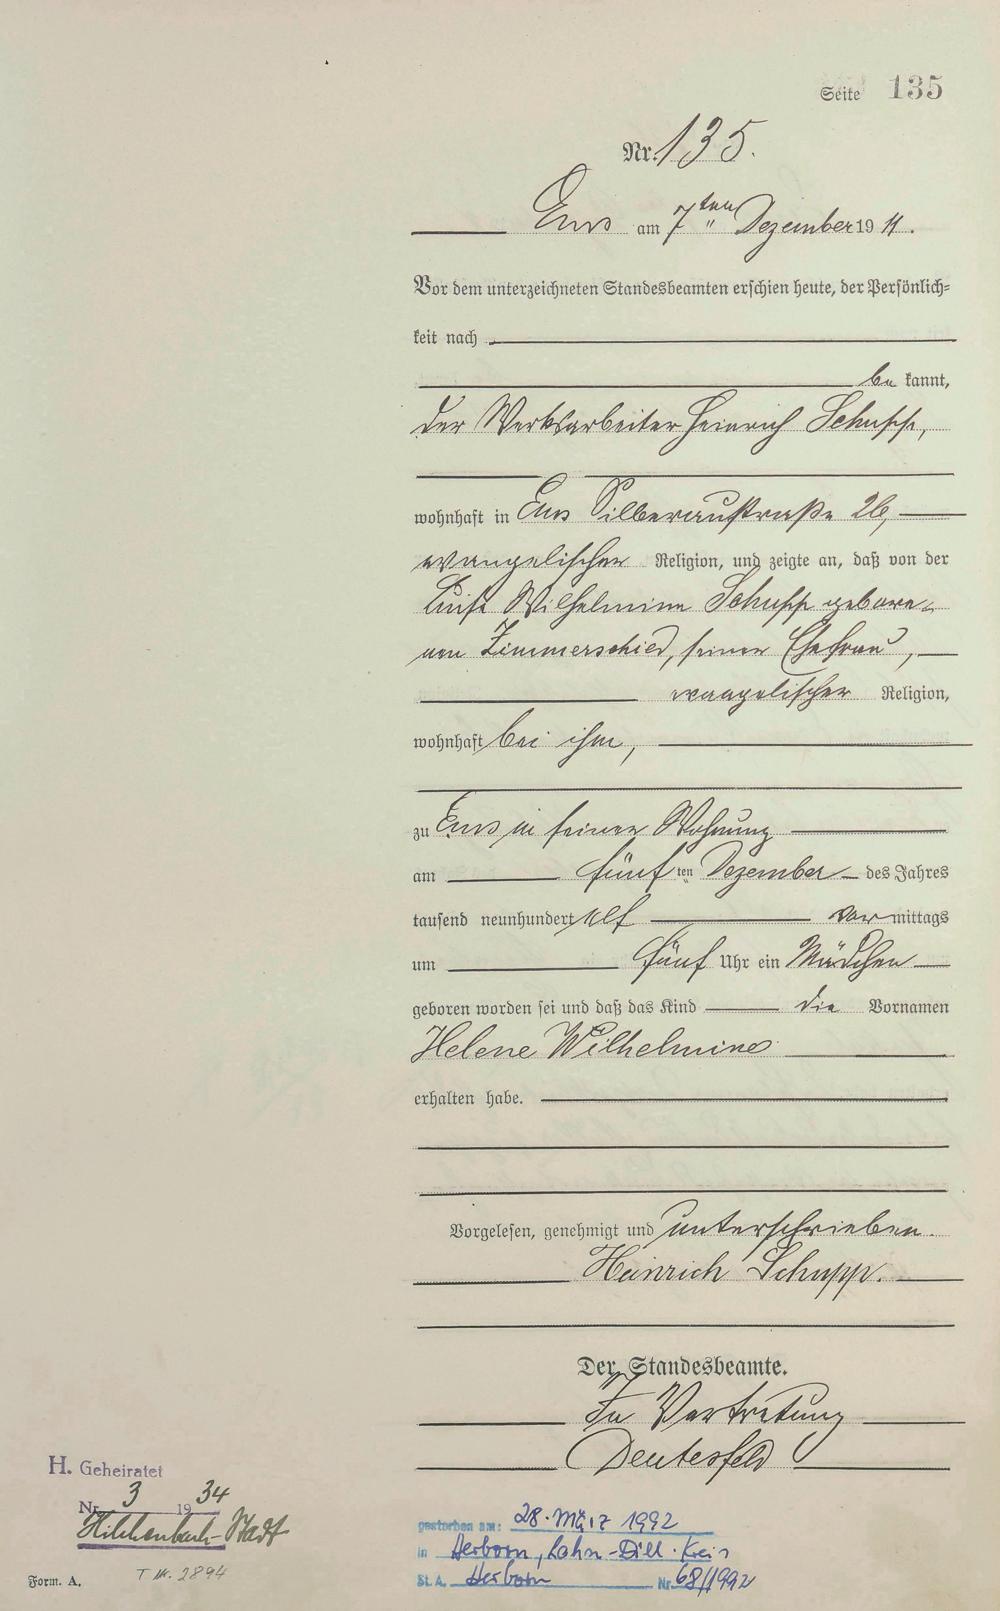 Seite 135
Nr. 135.
Ems am 7ten Dezember 1911.
Vor dem unterzeichneten Standesbeamten erschien heute, der Persönlich=
keit nach
be kannt,
der Werksarbeiter Heinrich Schupp,
wohnhaft in Ems Silberaustraße 26,
evangelischer Religion, und zeigte an, daß von der
Luise Wilhelmine Schupp gebore-
nen Zimmerschied, seiner Ehefrau,
evangelischer Religion,
wohnhaft bei ihm,
zu Ems in seiner Wohnung
am fünf ten Dezember des Jahres
tausend neunhundert elf vor mittags
um fünf Uhr ein Mädchen
geboren worden sei und daß das Kind die Vornamen
Helene Wilhelmine
erhalten habe.
Vorgelesen, genehmigt und unterschrieben.
Heinrich Schupp.
Der Standesbeamte.
In Vertretung
Deutesfeld
H. Geheiratet
Nr. 3 1934
Hilchenbach-Stadt
T Nr. 2894
Form. A.
gestorben am: 28. März 1992
in Herborn, Lahn-Dill-Kreis
St.A. Herborn Nr. 68/1992